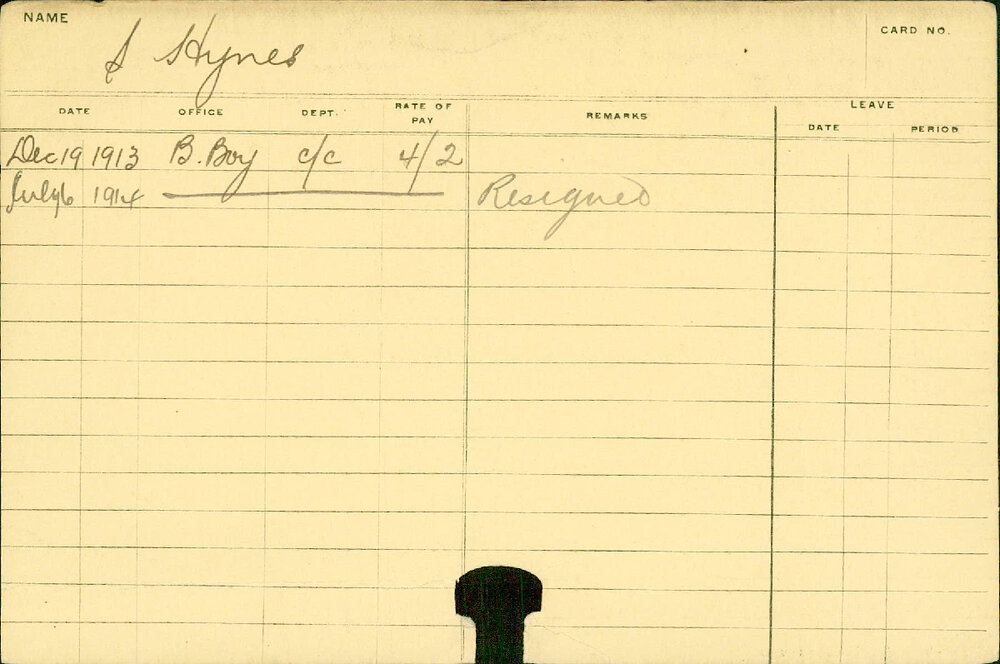 NAME
CARD NO.
S Hynes
DATE OFFICE DEPT. RATE OF PAY REMARKS LEAVE
DATE PERIOD
Dec 19 1913 B. Boy c/c 4/2
July 6 1914 Resigned